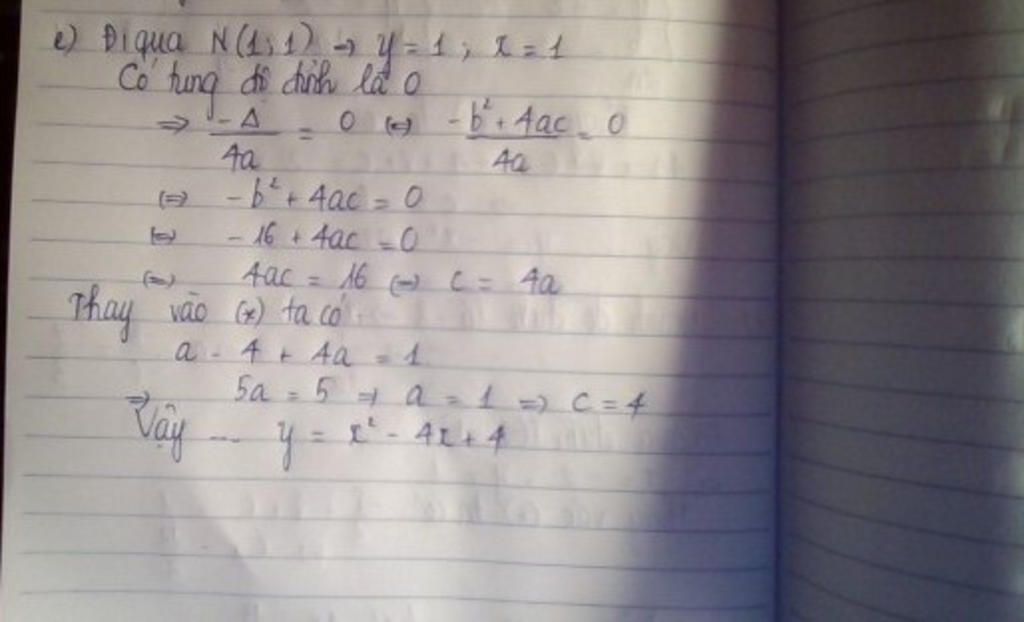 e) Đi qua N(1;1) → y = 1 ; x = 1
Có tung độ đỉnh là 0
⇒ -Δ/4a = 0 ⇔ -b² + 4ac/4a = 0
⇔ -b² + 4ac = 0
⇔ -16 + 4ac = 0
⇔ 4ac = 16 ⇔ c = 4a
Thay vào (*) ta có
a - 4 + 4a = 1
⇒ 5a = 5 ⇒ a = 1 ⇒ c = 4
Vậy ... y = x² - 4x + 4